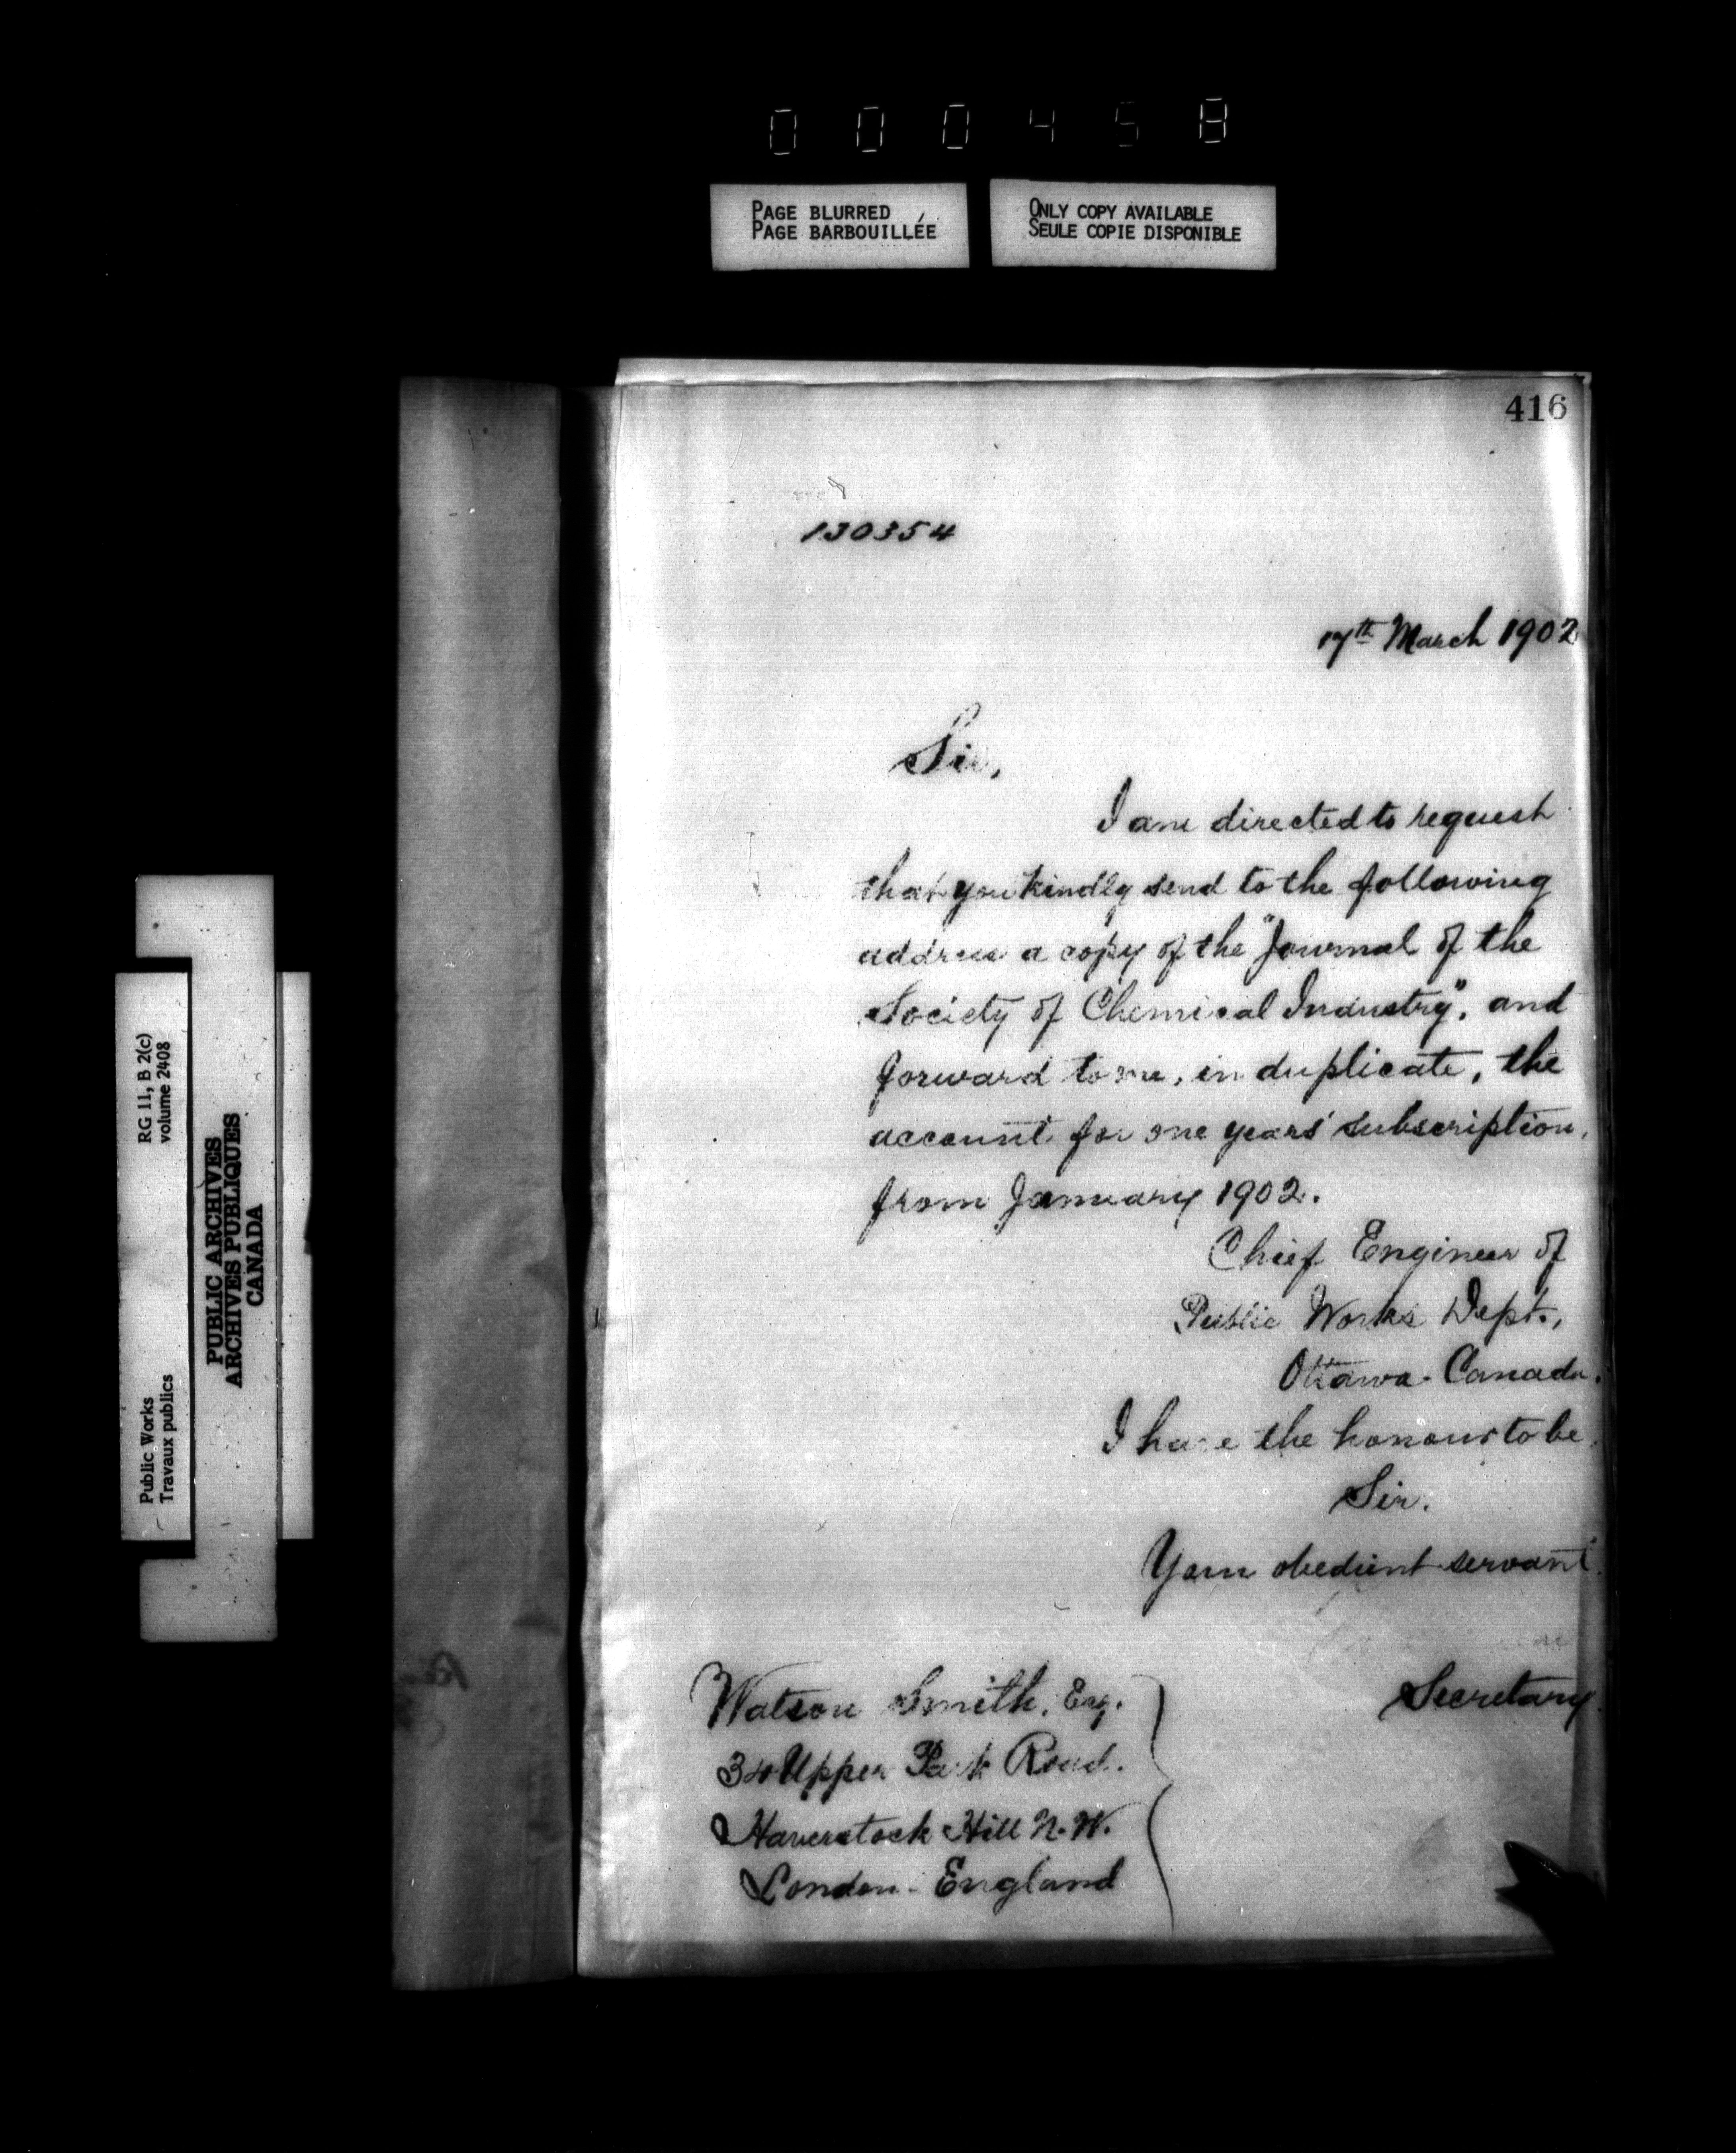 000458
PAGE BLURRED
PAGE BARBOUILLÉE
ONLY COPY AVAILABLE
SEULE COPIE DISPONIBLE
416
130354
17th March 1902
Sir,
I am directed to request
that you kindly send to the following
address a copy of the "Journal of the
Society of Chemical Industry", and
forward to me, in duplicate, the
account for one years' subscription,
from January 1902.
Chief Engineer of
Public Works Dept.,
Ottawa - Canada.
I have the honour to be,
Sir,
Your obedient servant
Secretary
Watson Smith, Esq.
34 Upper Park Road.
Haverstock Hill N.W.
London - England
RG 11, B 2(c)
volume 2408
Public Works
Travaux publics
PUBLIC ARCHIVES
ARCHIVES PUBLIQUES
CANADA